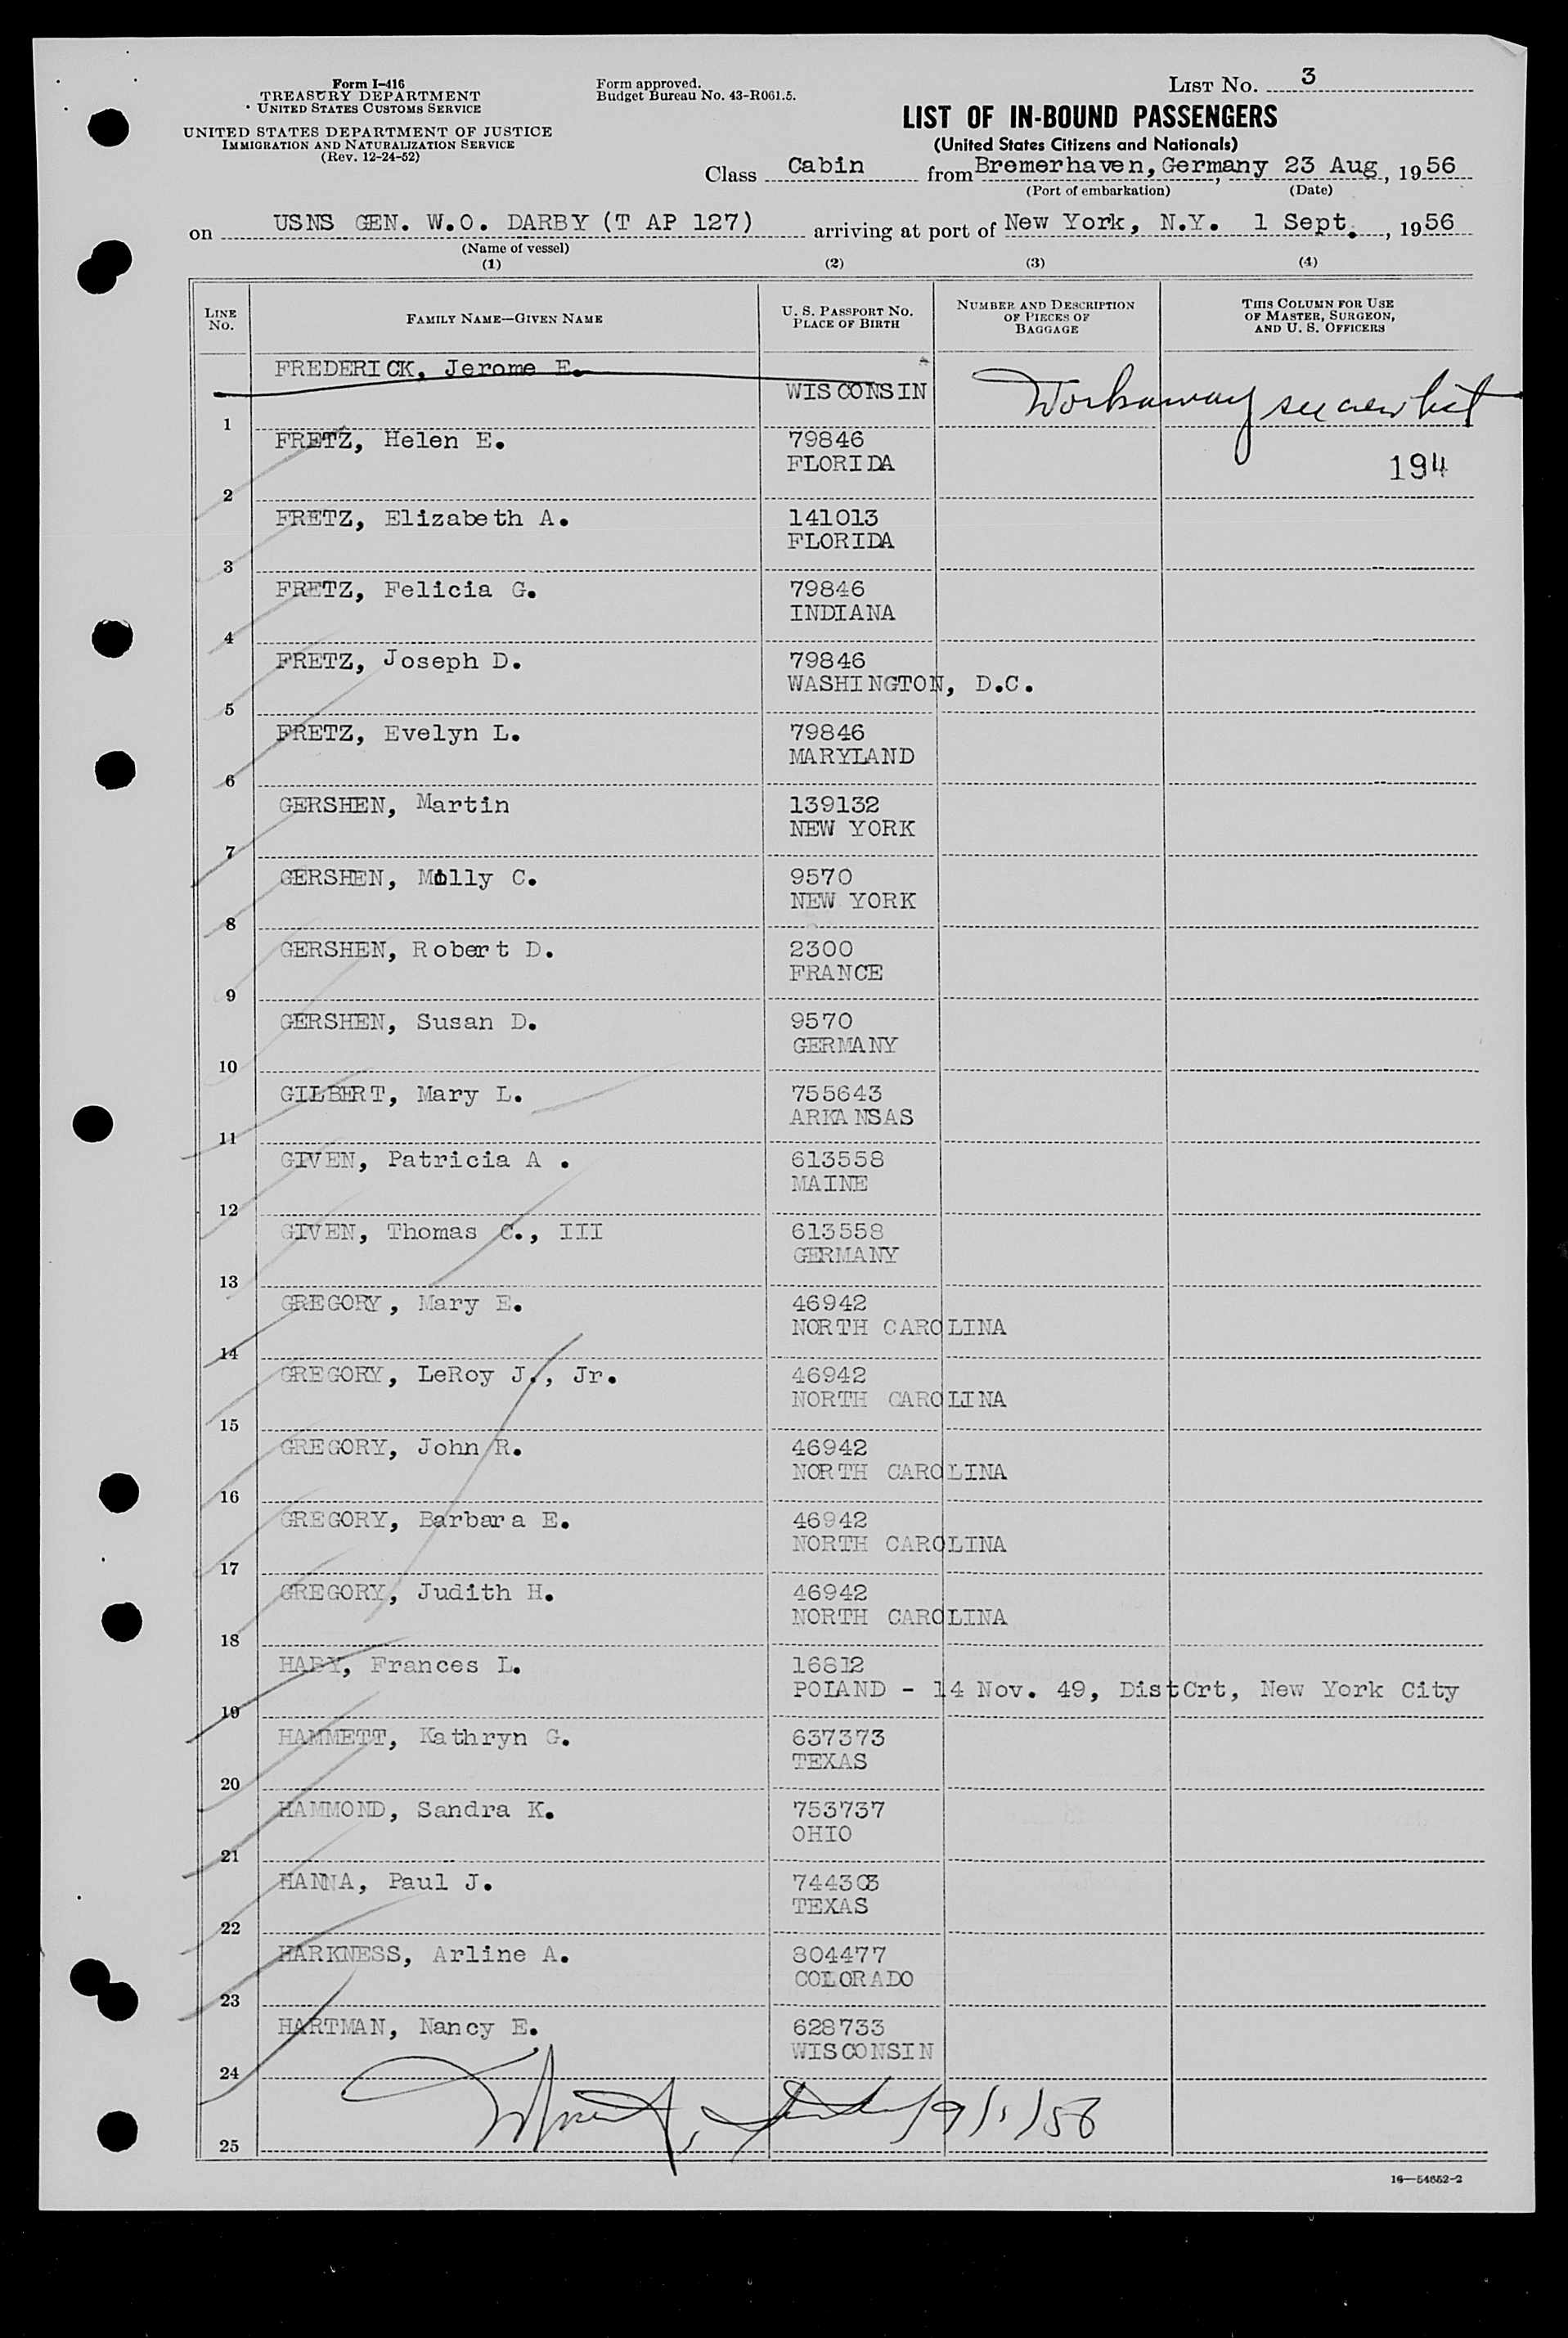 Form I-416
TREASURY DEPARTMENT
UNITED STATES CUSTOMS SERVICE
UNITED STATES DEPARTMENT OF JUSTICE
IMMIGRATION AND NATURALIZATION SERVICE
(Rev. 12-24-52)
Form approved.
Budget Bureau No. 43-R061.5.
LIST No. 3
LIST OF IN-BOUND PASSENGERS
(United States Citizens and Nationals)
Class Cabin from Bremerhaven, Germany, 23 Aug, 1956
(Port of embarkation) (Date)
on USNS GEN. W.O. DARBY (T AP 127) arriving at port of New York, N.Y. 1 Sept., 1956
(Name of vessel)
(1) (2) (3) (4)
LINE NO. FAMILY NAME—GIVEN NAME U. S. PASSPORT NO. PLACE OF BIRTH NUMBER AND DESCRIPTION OF PIECES OF BAGGAGE THIS COLUMN FOR USE OF MASTER, SURGEON, AND U. S. OFFICERS
FREDERICK, Jerome E.
WISCONSIN Workaway see crew list
1
FRETZ, Helen E. 79846
FLORIDA 194
2
FRETZ, Elizabeth A. 141013
FLORIDA
3
FRETZ, Felicia G. 79846
INDIANA
4
FRETZ, Joseph D. 79846
WASHINGTON, D.C.
5
FRETZ, Evelyn L. 79846
MARYLAND
6
GERSHEN, Martin 139132
NEW YORK
7
GERSHEN, Molly C. 9570
NEW YORK
8
GERSHEN, Robert D. 2300
FRANCE
9
GERSHEN, Susan D. 9570
GERMANY
10
GILBERT, Mary L. 755643
ARKANSAS
11
GIVEN, Patricia A. 613558
MAINE
12
GIVEN, Thomas C., III 613558
GERMANY
13
GREGORY, Mary E. 46942
NORTH CAROLINA
14
GREGORY, LeRoy J., Jr. 46942
NORTH CAROLINA
15
GREGORY, John R. 46942
NORTH CAROLINA
16
GREGORY, Barbara E. 46942
NORTH CAROLINA
17
GREGORY, Judith H. 46942
NORTH CAROLINA
18
HABY, Frances L. 16812
POLAND - 14 Nov. 49, DistCrt, New York City
19
HAMMETT, Kathryn G. 637373
TEXAS
20
HAMMOND, Sandra K. 753737
OHIO
21
HANNA, Paul J. 744303
TEXAS
22
HARKNESS, Arline A. 804477
COLORADO
23
HARTMAN, Nancy E. 628733
WISCONSIN
24
9/1/56
25
16—54652-2